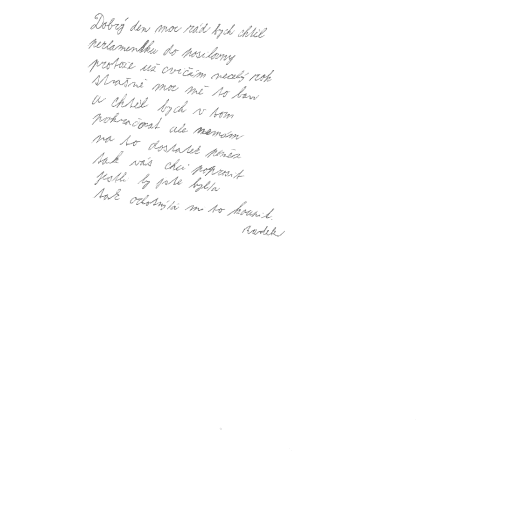 Dobrý den moc rád bych chtěl
permamentku do posilovny
protože už cvičím necelý rok
strašně moc mě to baví
a chtěl bych v tom
pokračovat ale nemám
na to dostatek peněz
tak vás chci poprosit
jestli by jste byl/a
tak ochotný/á m to koupit.
Radek